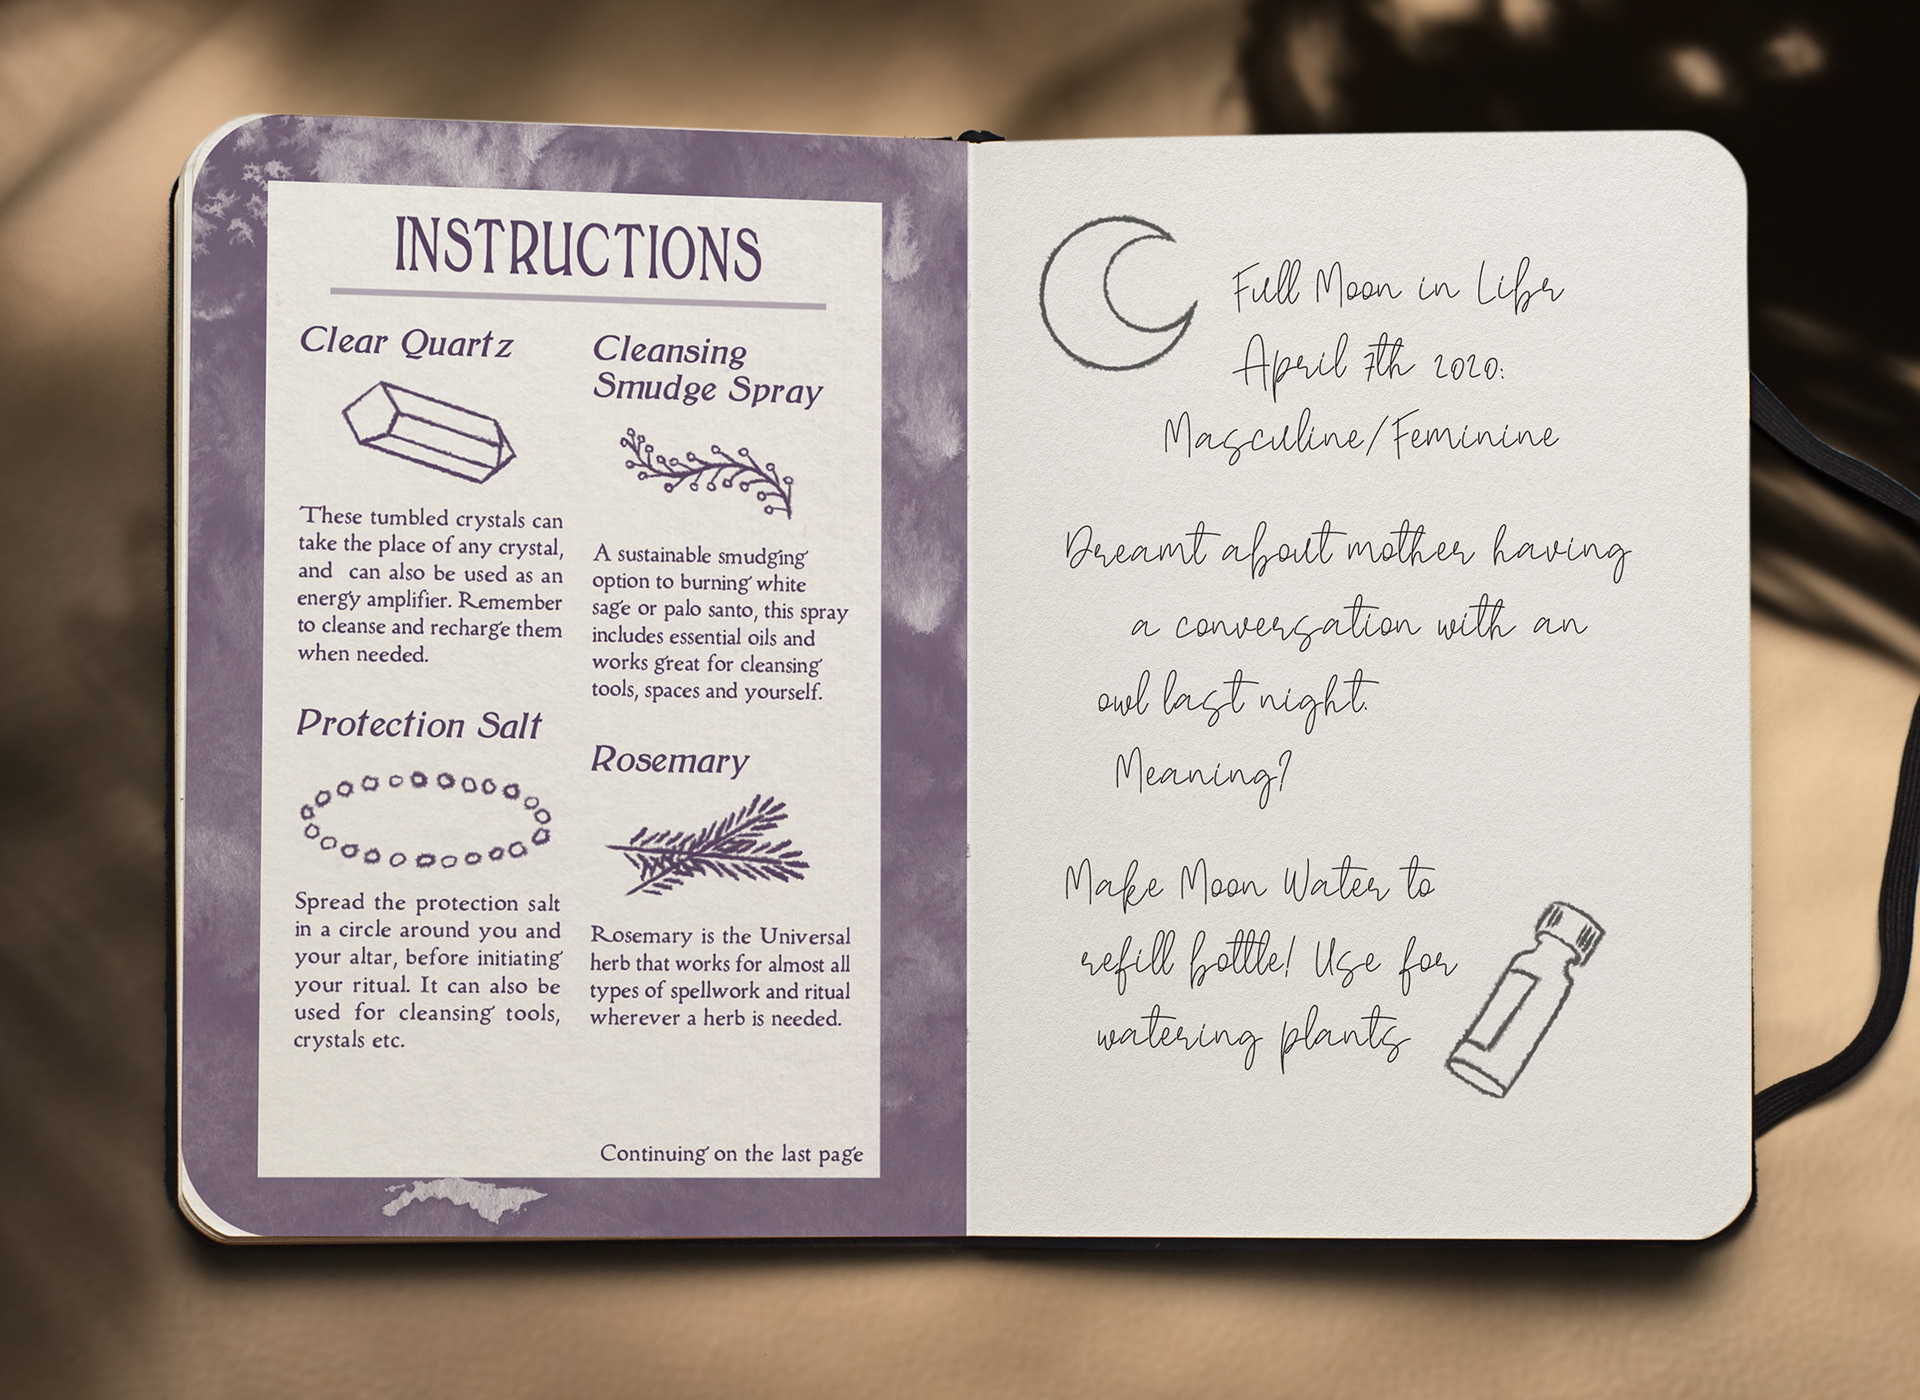 INSTRUCTIONS
Clear Quartz
These tumbled crystals can
take the place of any crystal,
and can also be used as an
energy amplifier. Remember
to cleanse and recharge them
when needed.
Protection Salt
Spread the protection salt
in a circle around you and
your altar, before initiating
your ritual. It can also be
used for cleansing tools,
crystals etc.
Cleansing
Smudge Spray
A sustainable smudging
option to burning white
sage or palo santo, this spray
includes essential oils and
works great for cleansing
tools, spaces and yourself.
Rosemary
Rosemary is the Universal
herb that works for almost all
types of spellwork and ritual
wherever a herb is needed.
Continuing on the last page
Full Moon in Libr
April 7th 2020:
Masculine/Feminine
Dreamt about mother having
a conversation with an
owl last night.
Meaning?
Make Moon Water to
refill bottle! Use for
watering plants